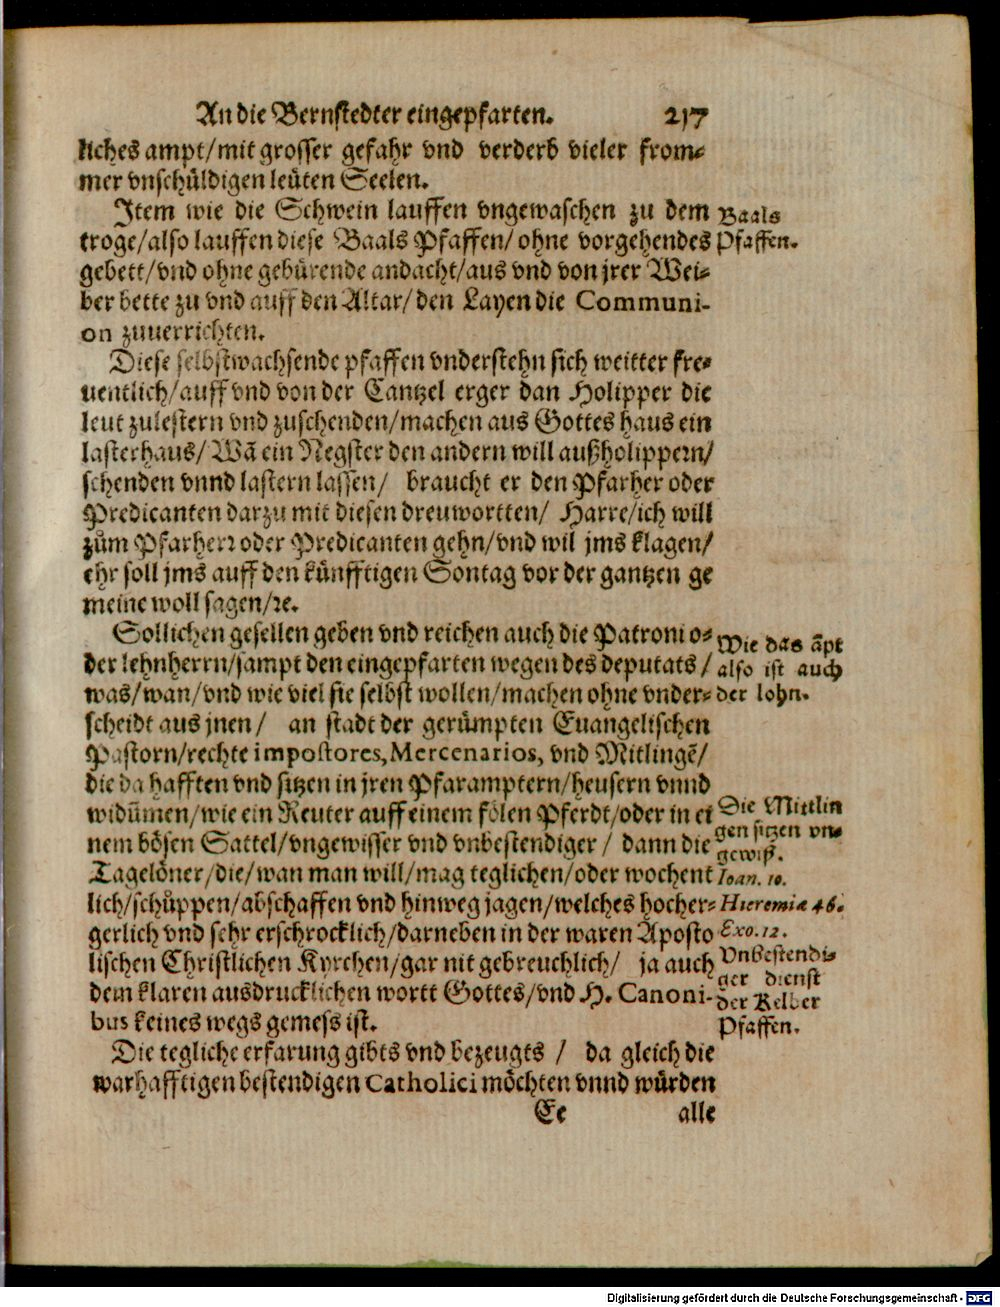 An die Bernstedter eingepfarten. 217
liches ampt/mit grosser gefahr vnd verderb vieler from-
mer vnschüldigen leüten Seelen.
Item wie die Schwein lauffen vngewaschen zu dem
troge/also lauffen diese Baals Pfaffen/ohne vorgehendes
gebett/vnd ohne gebürende andacht/aus vnd von jrer Wei-
ber bette zu vnd auff den Altar/den Layen die Communi-
on zuuerrichten.
Baals
Pfaffen.
Diese selbstwachsende pfaffen vnderstehn sich weitter fre-
uentlich/auff vnd von der Cantzel erger dan Holipper die
leut zulestern vnd zuschenden/machen aus Gottes haus ein
lasterhaus/Wã ein Negster den andern will außholippern/
schenden vnnd lastern lassen/ braucht er den Pfarher oder
Predicanten darzu mit diesen dreu wortten/ Harre/ich will
zům Pfarherr oder Predicanten gehn/vnd wil jms klagen/
ehr soll jms auff den künfftigen Sontag vor der gantzen ge
meine woll sagen/ꝛc.
Sollichen gesellen geben vnd reichen auch die Patroni o-
der lehnherrn/sampt den eingepfarten wegen des deputats/
was/wan/vnd wie viel sie selbst wollen/machen ohne vnder-
scheidt aus jnen/ an stadt der gerümpten Euangelischen
Pastorn/rechte impostores, Mercenarios, vnd Mitlingẽ/
die da hafften vnd sitzen in jren Pfaramptern/heusern vnnd
widümen/wie ein Reuter auff einem fölen Pferdt/oder in ei
nem bösen Sattel/vngewisser vnd vnbestendiger/ dann die
Tagelöner/die/wan man will/mag teglichen/oder wochent
lich/schüppen/abschaffen vnd hinweg jagen/welches hocher-
gerlich vnd sehr erschrocklich/darneben in der waren Aposto
lischen Christlichen Kyrchen/gar nit gebreuchlich/ ja auch
dem klaren ausdrucklichen wortt Gottes/vnd H. Canoni-
bus keines wegs gemess ist.
Wie das ãpt
also ist auch
der lohn.
Die Mittlin
gen sitzen vn-
gewiß.
Ioan. 10.
Hieremiæ 46.
Exo. 12.
Vnbestendi-
ger dienst
der Kelber
Pfaffen.
Die tegliche erfarung gibts vnd bezeugts/ da gleich die
warhafftigen bestendigen Catholici möchten vnnd würden
Ee alle
Digitalisierung gefördert durch die Deutsche Forschungsgemeinschaft - DFG